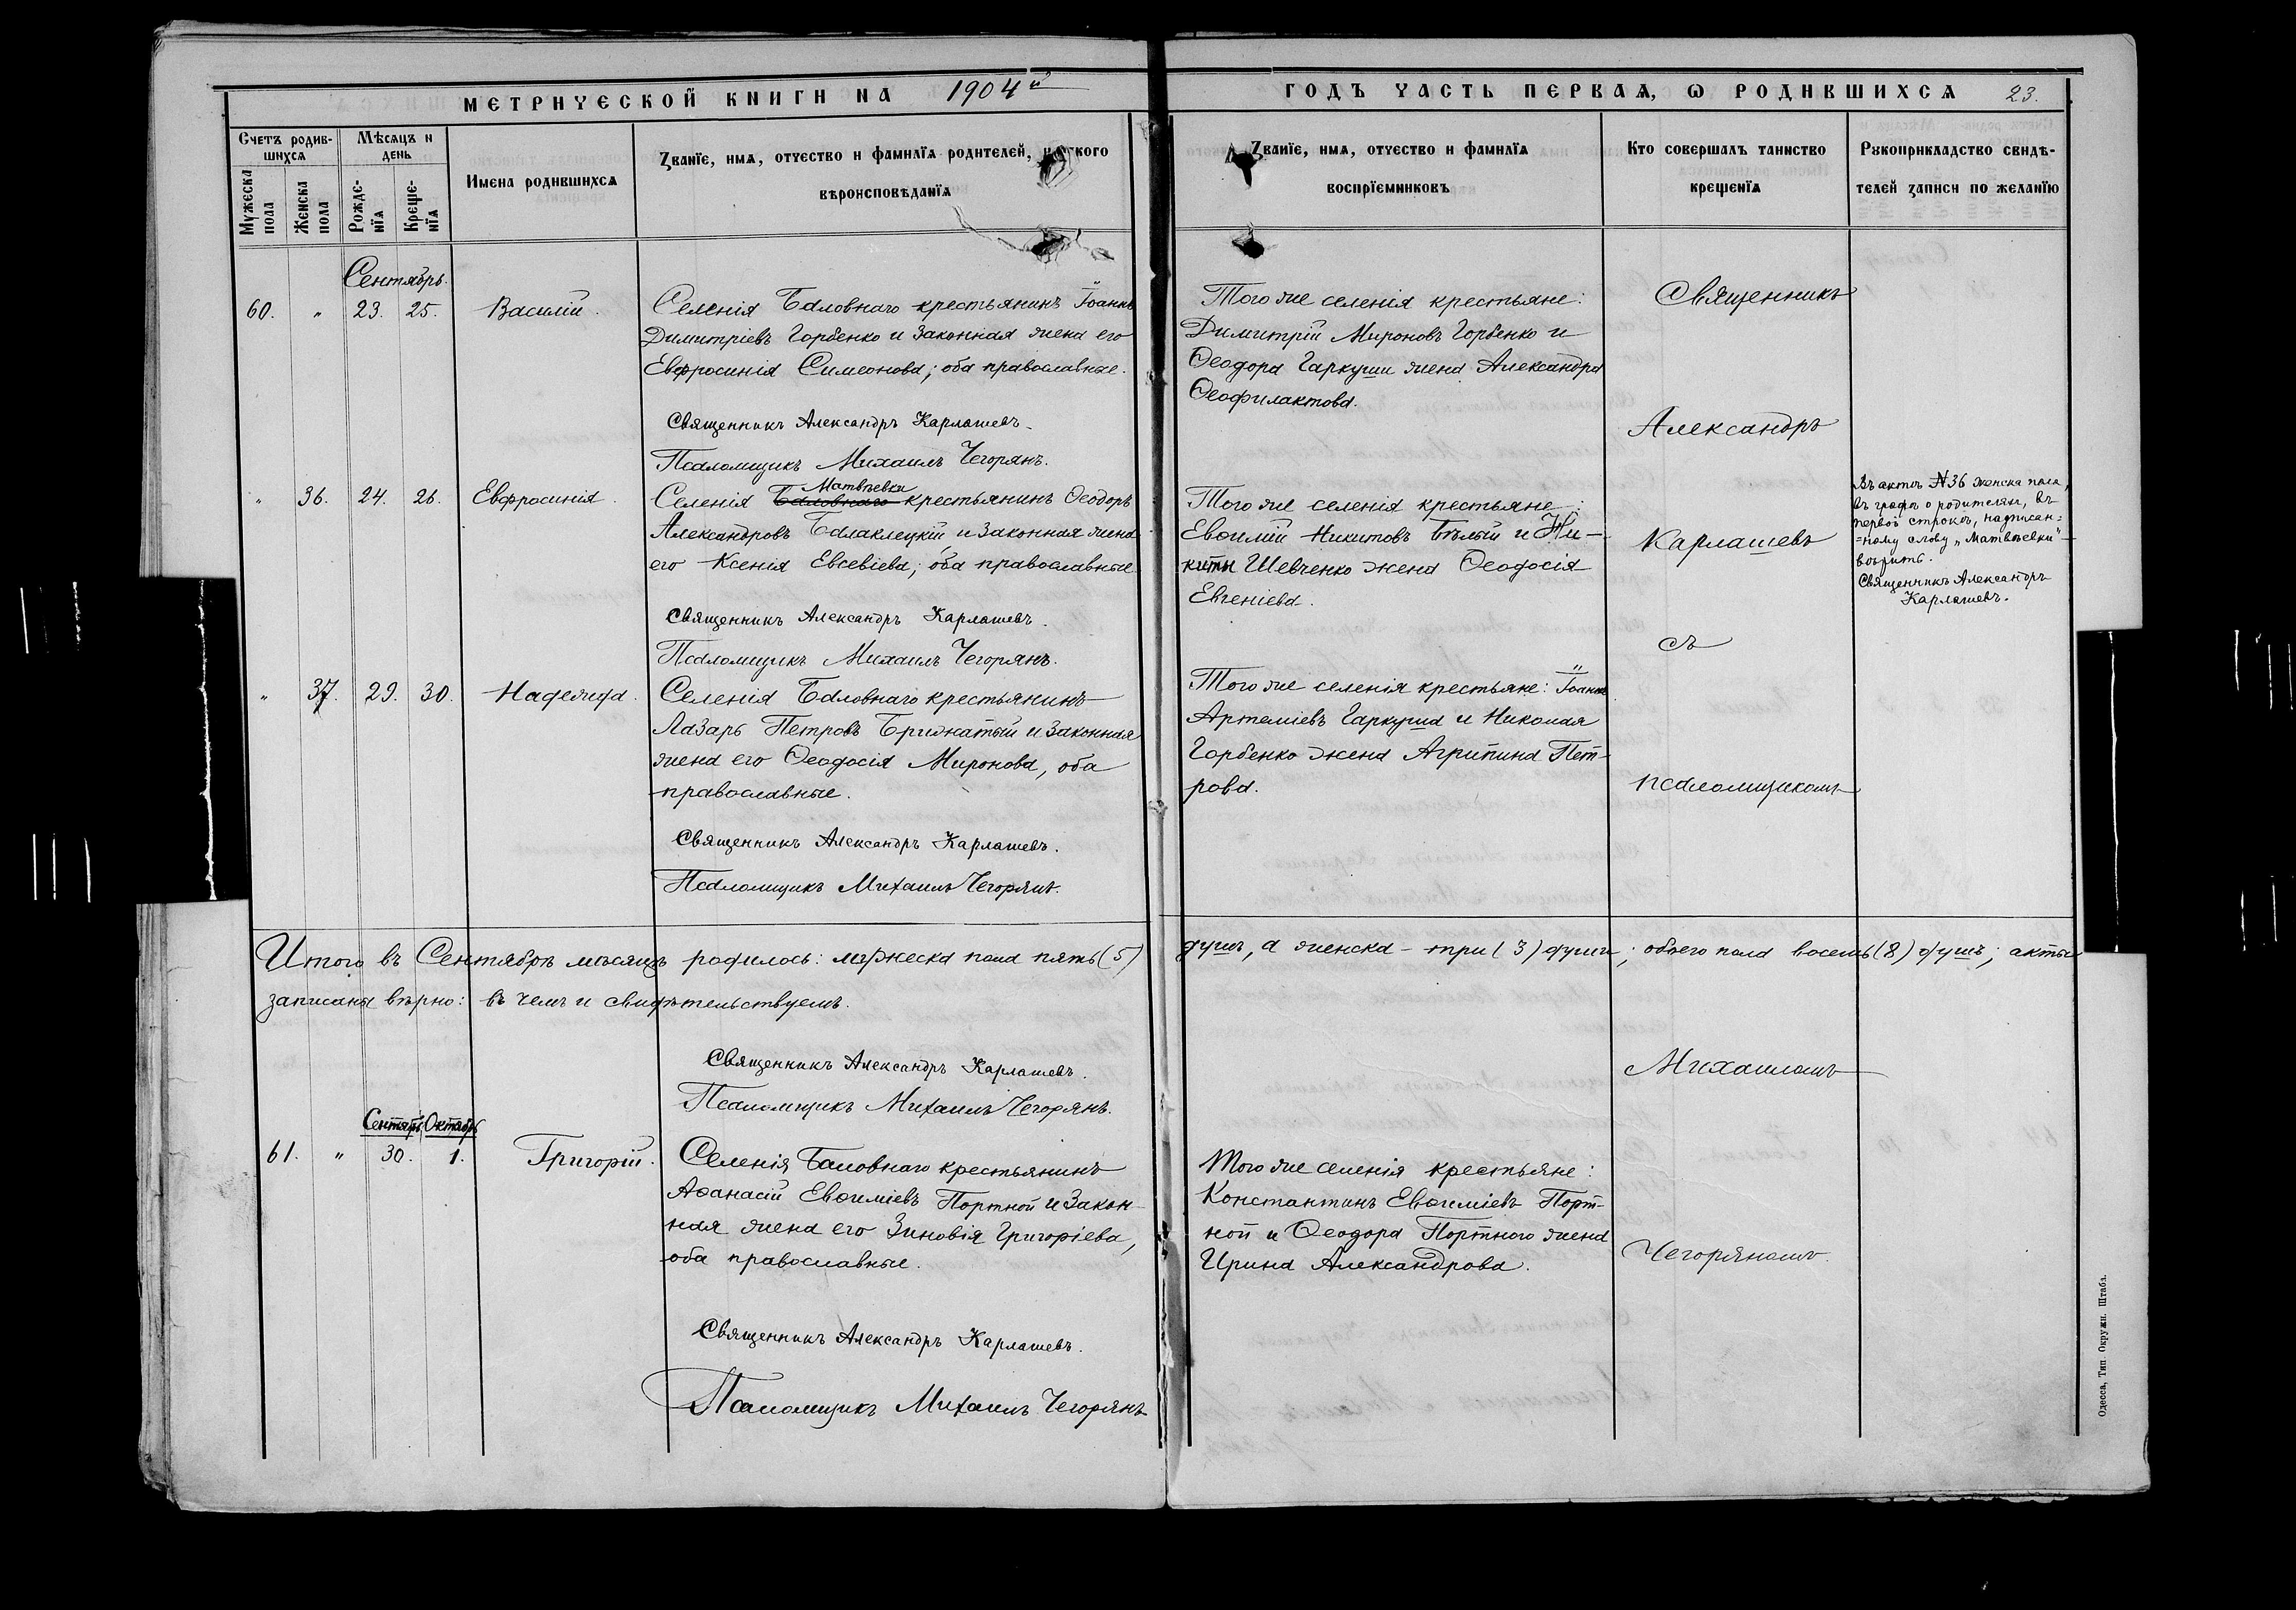 МЕТРИЧЕСКОЙ КНИГИ НА 1904й
Счетъ родив-
шихся
Мѣсяцъ и
день
Мужеска
пола
Женска
пола
Рожде-
нїя
Креще-
нїя
Имена родившихся
Званїе, имя, отчество и фамилїя родителей, и какого
вѣроисповѣданїя
Сентябрь.
60. " 23. 25. Василій.
Селенія Баловнаго крестьянинъ Іоаннъ
Димитріевъ Горбенко и законная жена его
Евфросинія Симеонова; оба православные.
Священникъ Александръ Карлашевъ.
Псаломщикъ Михаилъ Чегорянъ.
" 36. 24. 26. Евфросинія.
Матвѣевки
Селенія Баловнаго крестьянинъ Ѳеодоръ
Александровъ Балаклецкій и законная жена
его Ксенія Евсевіева; оба православные
Священникъ Александръ Карлашевъ.
Псаломщикъ Михаилъ Чегорянъ.
" 37. 29. 30. Надежда.
Селенія Баловнаго крестьянинъ
Лазарь Петровъ Бриднатый и законная
жена его Ѳеодосія Миронова, оба
православные.
Священникъ Александръ Карлашевъ.
Псаломщикъ Михаилъ Чегорянъ.
Итого въ Сентябрѣ мѣсяцѣ родилось: мужеска пола пять (5)
записаны вѣрно: въ чемъ и свидѣтельствуемъ.
Священникъ Александръ Карлашевъ.
Псаломщикъ Михаилъ Чегорянъ.
Сентябрь Октябрь
61. " 30. 1. Григорій.
Селенія Баловнаго крестьянинъ
Аѳанасій Евѳиміевъ Портной и закон-
ная жена его Зиновія Григоріева,
оба православные.
Священникъ Александръ Карлашевъ.
Псаломщикъ Михаилъ Чегорянъ
ГОДЪ ЧАСТЬ ПЕРВАЯ, Ѡ РОДИВШИХСЯ 23.
Званїе, имя, отчество и фамилїя
воспрїемниковъ
Кто совершалъ таинство
крещенїя
Рукоприкладство свидѣ-
телей записи по желанїю
Того же селенія крестьяне:
Димитрій Мироновъ Горбенко и
Ѳеодора Гаркуши жена Александра
Ѳеофилактова.
Того же селенія крестьяне:
Евѳимій Никитовъ Бѣлый и Ни-
киты Шевченко жена Ѳеодосія
Евгеніева.
Того же селенія крестьяне: Іоаннъ
Артеміевъ Гаркуша и Николая
Горбенко жена Агрипина Пет-
рова.
душъ, а женска - три (3) души; обоего пола восемь (8) душъ; акты
Того же селенія крестьяне:
Константинъ Евѳиміевъ Порт-
ной и Ѳеодора Портного жена
Ирина Александрова.
Священникъ
Александръ
Карлашевъ
съ
псаломщикомъ
Михаиломъ
Чегоряномъ.
Въ актѣ №36 женска пола,
въ графѣ о родителяхъ, въ
первой строкѣ, надписан-
=ному слову „Матвѣевки"
вѣрить.
Священникъ Александръ
Карлашевъ.
Одесса, Тип. Окружн. Штаба.